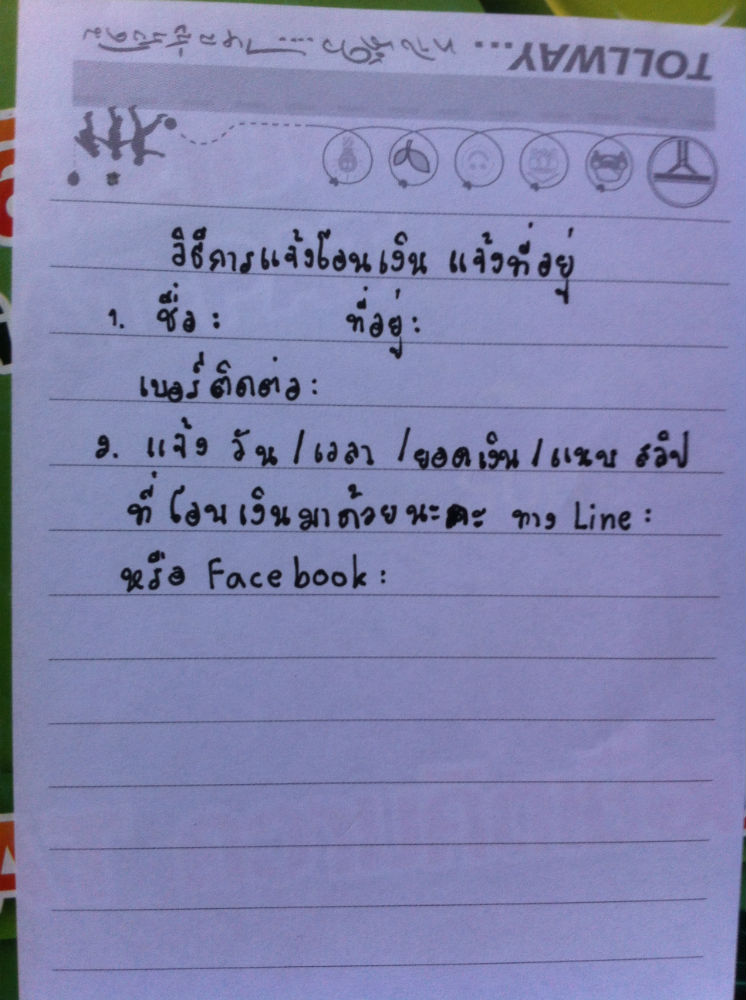 TOLLWAY...
วิธีการแจ้งโอนเงิน แจ้งที่อยู่
1. ชื่อ : ที่อยู่ :
เบอร์ติดต่อ :
2. แจ้ง วัน / เวลา / ยอดเงิน / แนบ สลิป
ที่ โอนเงินมาด้วยนะคะ ทาง Line :
หรือ Facebook :